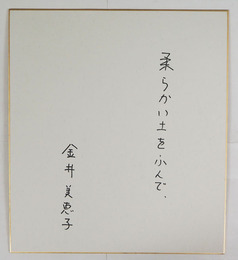 柔らかい土をふんで、
金井美恵子